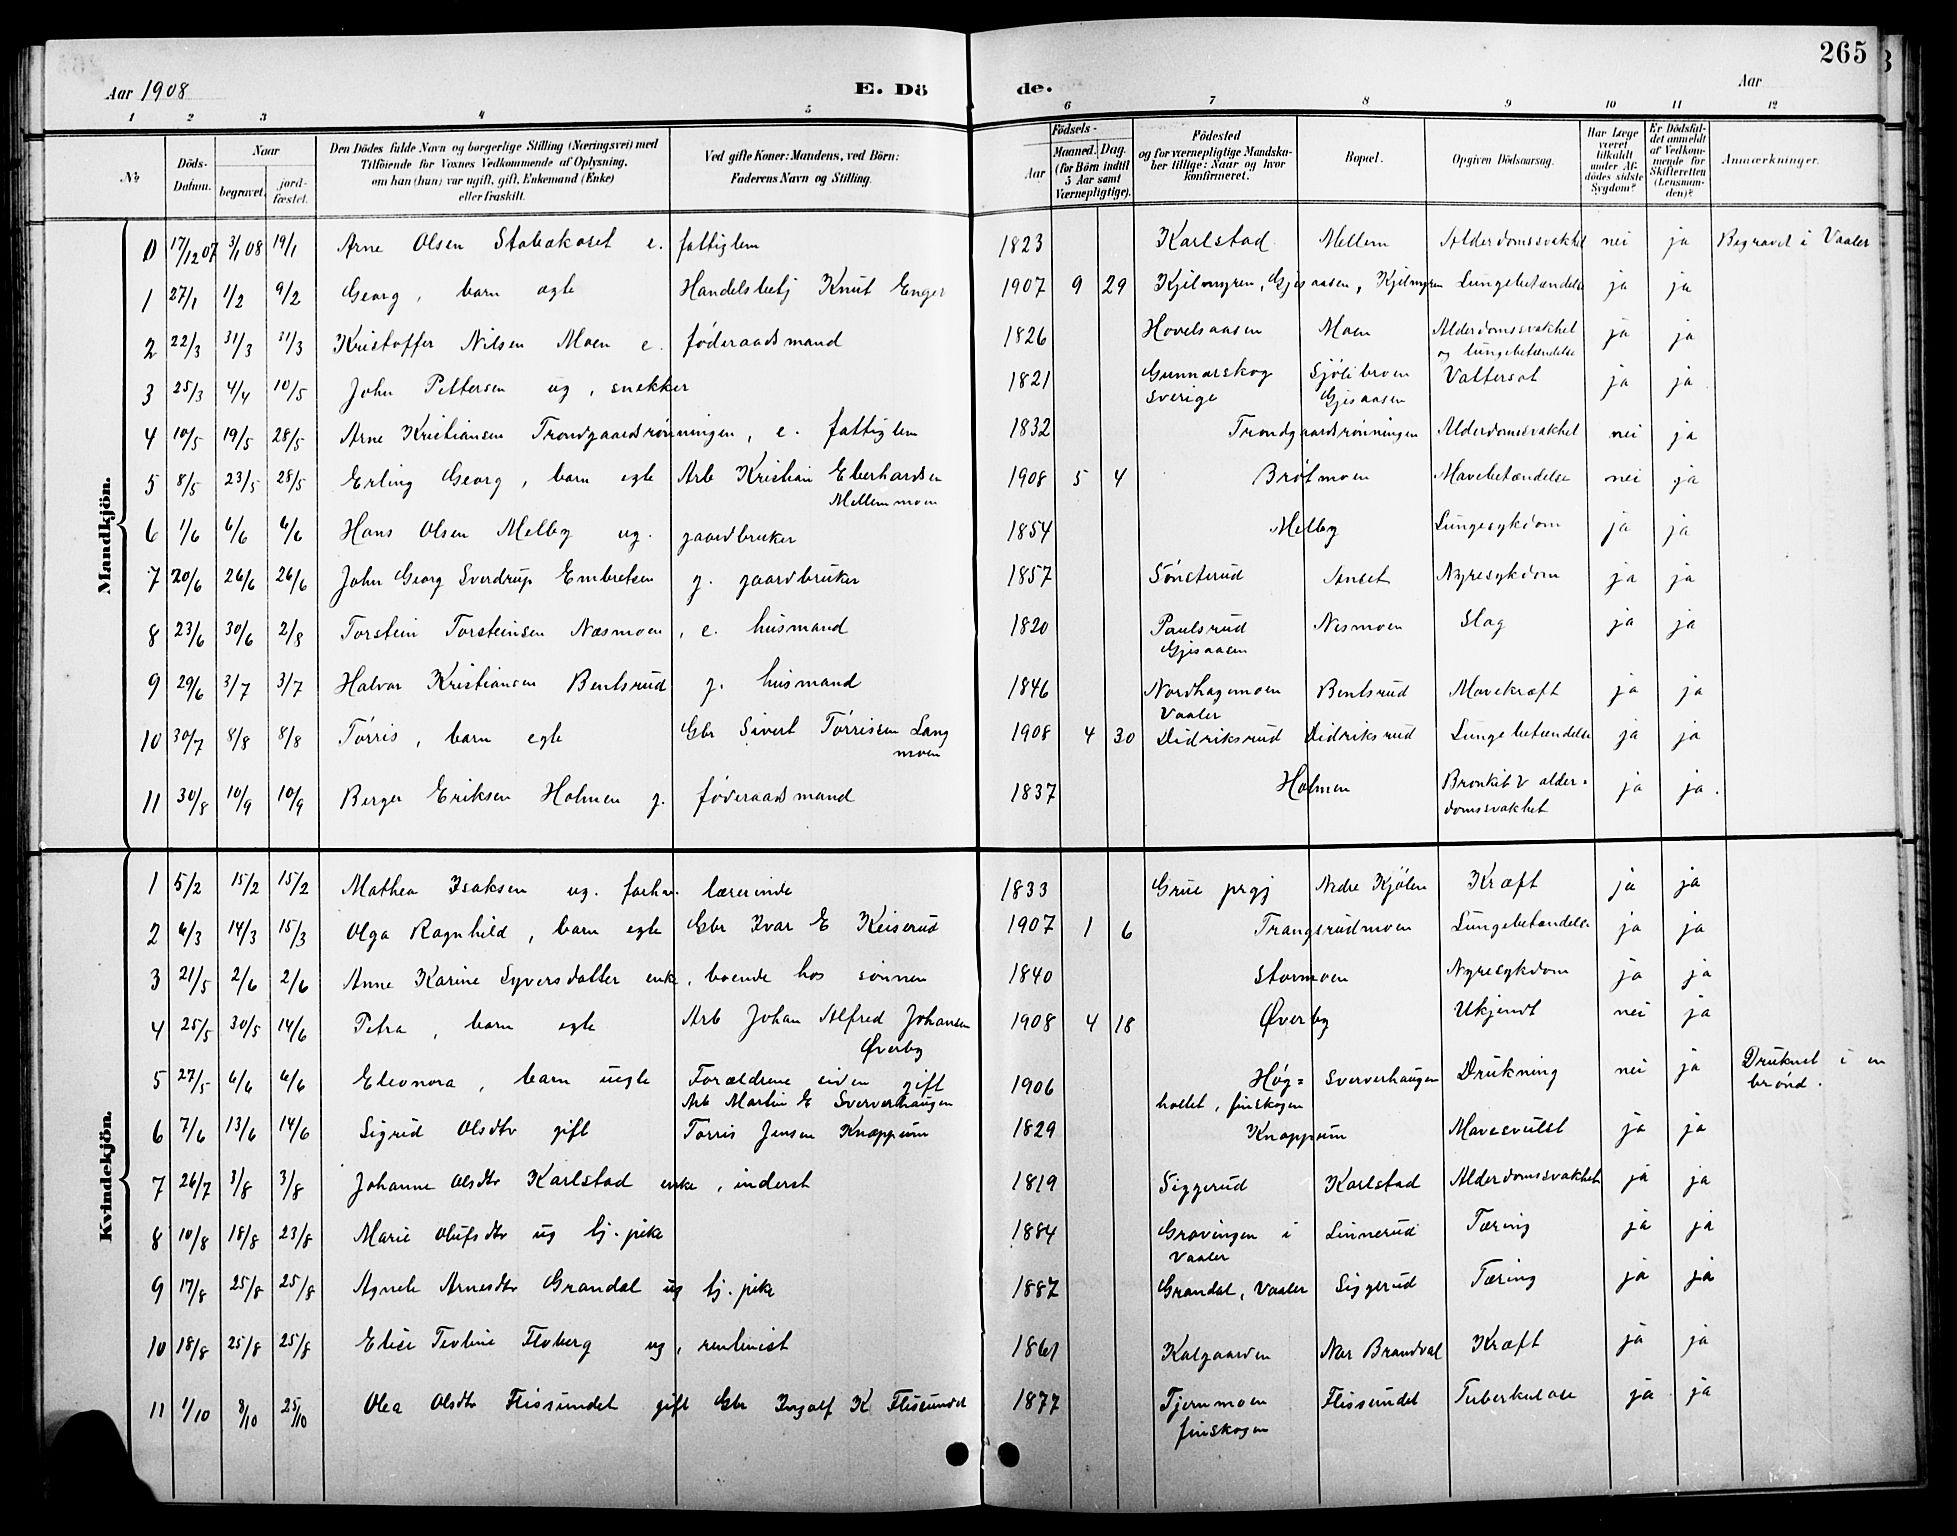 265
Aar 1908 E. Dö de. Aar
1 2 3 4 5 6 7 8 9 10 11 12
No
Döds-Datum.
Naar begravet. jord-fæstet.
Den Dödes fulde Navn og borgerlige Stilling (Næringsvei) med Tilföiende for Voxnes Vedkommende af Oplysning, om han (hun) var ugift, gift, Enkemand (Enke) eller fraskilt.
Ved gifte Koner: Mandens, ved Börn: Faderens Navn og Stilling.
Födsels-
Aar Maaned. Dag. (for Börn indtil 5 Aar samt Værnepligtige).
Födested og for værnepligtige Mandskaber tillige: Naar og hvor konfirmeret.
Bopæl.
Opgiven Dödsaarsag.
Har Læge været tilkaldt under Afdödes sidste Sygdom?
Er Dödsfaldet anmeldt af Vedkommende for Skifteretten (Lensmanden)?
Anmærkninger.
Mandkjön.
0 17/12 07 3/1 08 19/1 Arne Olsen Stabakaset e. fattiglem 1823 Karlstad Mellem Alderdomssvakhet nei ja Begravet i Vaaler
1 27/1 1/2 9/2 Georg, barn egte Handelsbetj Knut Enger 1907 9 29 Kjilmyren, Gjesaasen, Kjilmyren Lungebetændelse ja ja
2 22/3 31/3 31/3 Kristoffer Nilsen Moen e. føderaadsmand 1826 Hovelsaasen Moen Alderdomssvakhet ja ja
og lungebetændelse
3 25/3 4/4 10/5 John Pettersen ug, snekker 1821 Gunnarskog Sjölibroen Vattersot ja ja
Sverige Gjesaasen
4 10/5 19/5 28/5 Arne Kristiansen Trondgaardsrønningen, e. fattiglem 1832 Trondgaardsrønningen Alderdomssvakhet nei ja
5 8/5 23/5 28/5 Erling Georg, barn egte Arb Kristian Eberhardsen 1908 5 4 Brøtmoen Mavebetændelse nei ja
Mellemmoen
6 1/6 6/6 6/6 Hans Olsen Melby ug. gaardbruker 1854 Melby Lungesykdom ja ja
7 20/6 26/6 26/6 John Georg Sverdrup Embretsen g. gaardbruker 1857 Sönsterud Anset Nyresykdom ja ja
8 23/6 30/6 2/8 Torstein Torsteinsen Næsmoen, e. husmand 1820 Paulsrud Nesmoen Slag ja ja
Gjesaasen
9 29/6 3/7 3/7 Halvor Kristiansen Bentsrud g. husmand 1846 Nordhagemoen Bentsrud Mavekræft ja ja
Vaaler
10 30/7 8/8 8/8 Tørris, barn egte Gbr Sivert Tørrissen Lang 1908 4 30 Didriksrud Didriksrud Lungebetændelse ja ja
moen
11 30/8 10/9 10/9 Berger Eriksen Holmen g. føderaadsmand 1837 Holmen Bronkit & alder= ja ja.
domssvakhet
Kvindekjön.
1 5/2 15/2 15/2 Mathea Isaksen ug. forhv. lærerinde 1833 Grue prgj Nedre Kjølen Kræft ja ja
2 6/3 14/3 15/3 Olga Ragnhild, barn egte Gbr Ivar E Keiserud 1907 1 6 Trangsrudmoen Lungebetændelse ja ja
3 21/5 2/6 2/6 Anne Karine Syversdatter enke, boende hos sønnen 1840 Stormoen Nyresykdom ja ja
4 25/5 30/5 14/6 Petra, barn egte Arb Johan Alfred Johansen 1908 4 18 Øverby Ukjendt nei ja
Øverby
5 27/5 6/6 6/6 Eleonora, barn uegte Forældrene siden gift 1906 Høg= Sververhaugen Drukning nei ja Druknet i en
Arb Martin E Sververhaugen holtet, finskogen brönd.
6 7/6 13/6 14/6 Sigrid Olsdtr gift Torris Jensen Knappum 1829 Knappum Mavesvulst ja ja
7 26/7 3/8 3/8 Johanne Olsdtr Karlstad enke, inderst 1819 Siggerud Karlstad Alderdomssvakhet ja ja
8 10/8 18/8 23/8 Marie Olufsdtr ug tj. pike 1884 Grovingen i Linnerud Tæring ja ja
Vaaler
9 17/8 25/8 25/8 Agnete Arnesdtr Grandal ug tj. pike 1887 Grandal, Vaaler Siggerud Tæring ja ja
10 18/8 25/8 25/8 Elise Teoline Floberg ug, rentenist 1861 Kalgaarden Nor Brandval Kræft ja ja
11 1/10 8/10 25/10 Olea Olsdtr Flissundet gift Gbr Ingolf K Flissundet 1877 Tjernmoen Flissundet Tuberkulose ja ja
finskogen